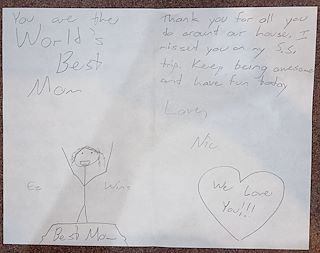 You are the
World's
Best
Mom
Ez Wins
Best Mom
Thank you for all you
do around our house. I
missed you on my S.S.
trip. Keep being awesome
and have fun today
Love,
Nic
We Love
You!!!